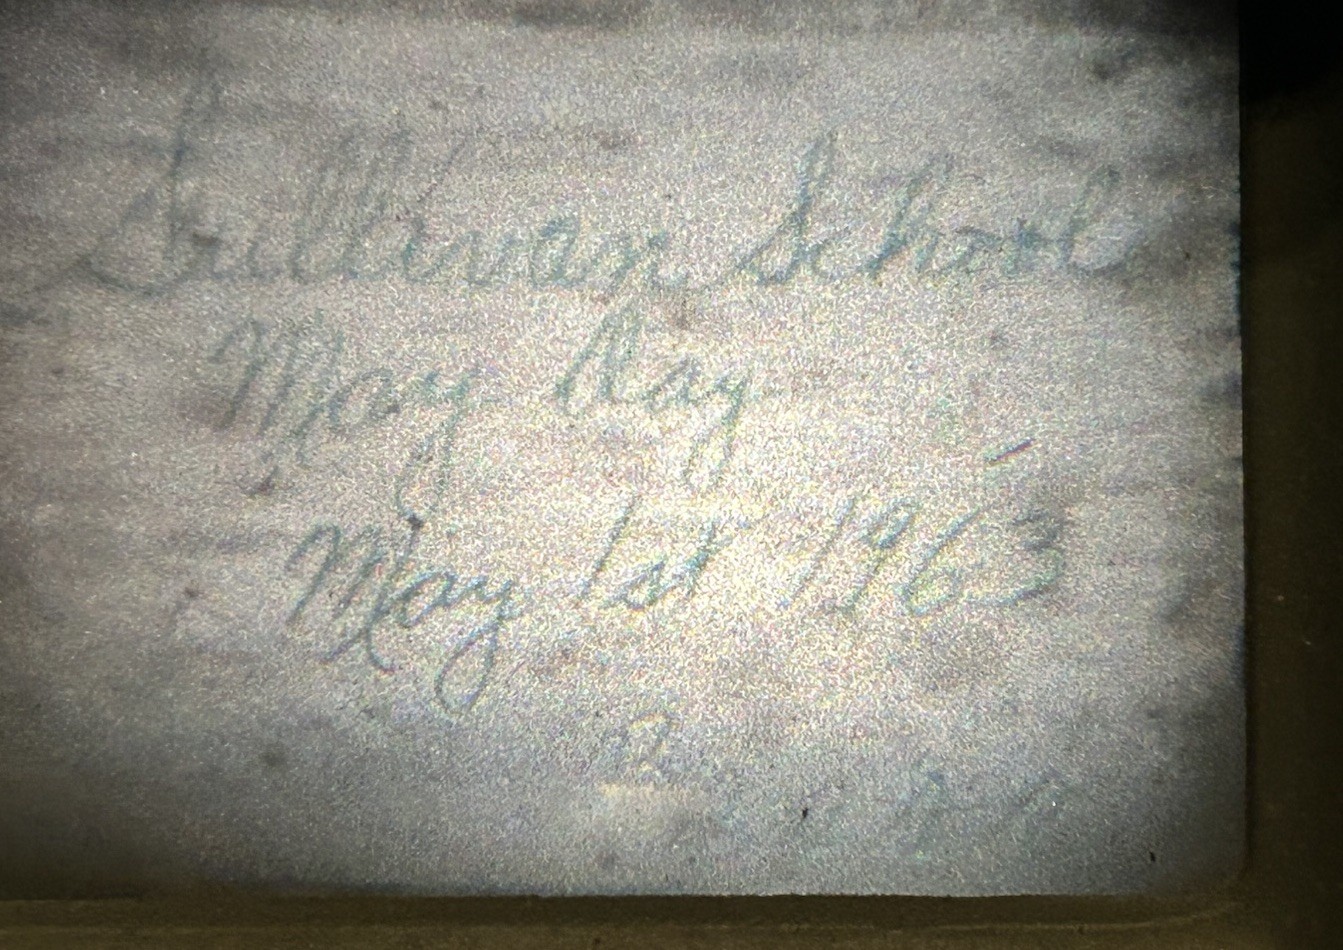 Sullivan School
May Day
May 1st 1963